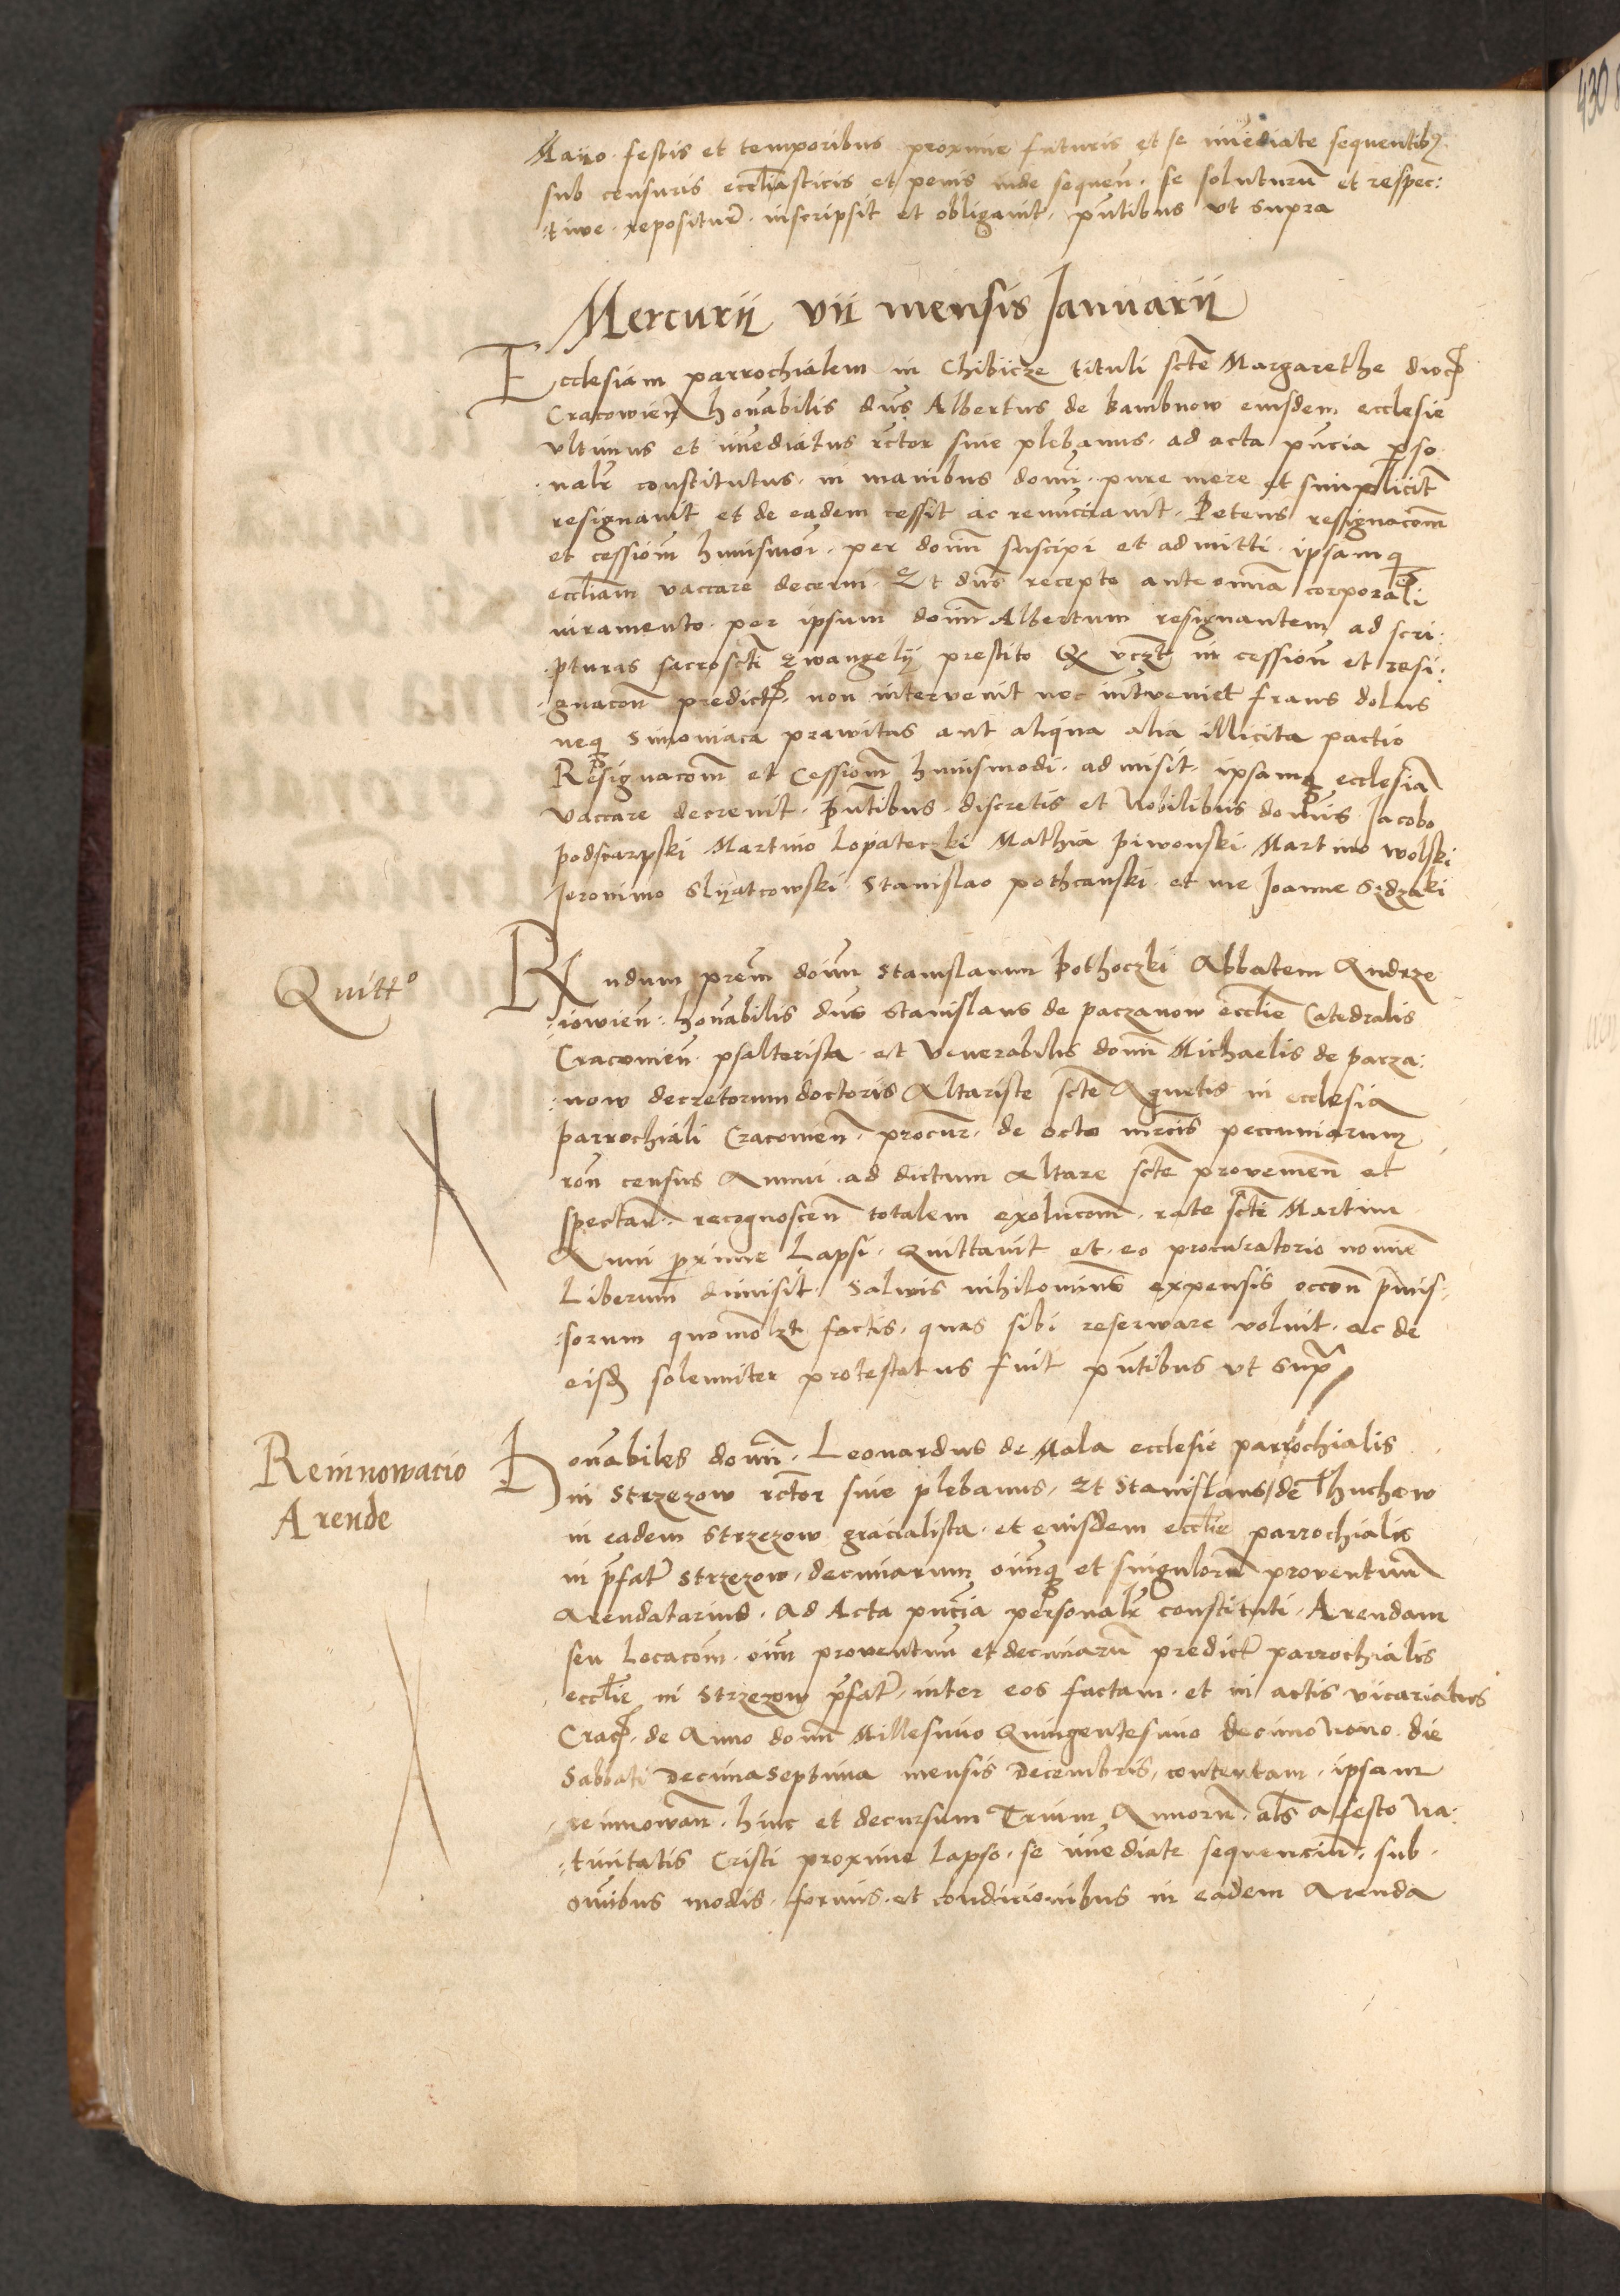 430
Maiio festis et temporibus proxime futuris et se im̄ediate sequentibꝫ
sub censuris eccl̄iasticis et penis inde sequen̄. se soluturū et respec:
:tiwe repositur̄. inscripsit et obligavit. pn̄tibus vt supra
Mercurij vij mensis Januarij
Ecclesiam parrochialem in Chibicze tituli scte Margarethe dioc̄
Cracowien̄ hon̄abilis dn̄s Albertus de Bambnow eiusdem ecclesie
vltimus et im̄ediatus rc̄tor siue plebanus. ad acta pn̄cia perso
:nalr̄ constitutus. in manibus domī. pure mere et simplicit̄
resignavit et de eadem cessit ac renūcciauit. Petens ressignacoēm
et cessioēm huiusmoī. per domī suscipi et admitti. ipsamqꝫ
eccl̄iam vaccare decerni. Et dn̄s recepto ante om̄ia corporali
iuramento. per ipsum domī Albertum resignantem ad scri:
:pturas sacroscti Ewangelij prestito Qꝫ vcꝫt in cessioē et resi:
:gnacoē predict̄. non intervenit nec int̄veniet fraus dolus
neqꝫ simoniaca prawitas aut aliqua alia illicita pactio
Resignacoēm et Cessioēm huiusmodi. admisit. ipsamqꝫ ecclesiā
vaccare decrevit. Pn̄tibus. discretis et Nobilibus domīs Jacobo
Podscarpski Martino Lopateczki Mathia Piwonski Martino Wolski
Jeronimo Slyatcowski Stanislao Pothcanski. et me Joanne Sędzski
Quitto
Rndum prem̄ domī Stanislaum Pothoczki Abbatem Andrze
:iowien̄. hon̄abilis dn̄s Stanislaus de Paczanow eccl̄ie Catedralis
Cracowien̄ psalterista. et Venerabilis domī Michaelis de Pacza:
:now decretorum doctoris Altariste scte Agnetis in ecclesia
parrochiali Cracovien̄. procur̄. de octo mr̄cis peccuniarum
rōn census Annui ad dictum Altare scte provenien̄ et
spectan̄. recognoscen̄ totalem exolucoēm. rate scti Martini
Anni proxime Lapsi. Quittavit et. eo procuratorio nomīe
Liberum dimisit. Salwis nihilominꝰ expensis occoē pr̄mis:
:sorum quomolꝫt factis. quas sibi reserware voluit. ac de
eisd̄ solenniter protestatus fuit pn̄tibus vt supr̄
Reinnowacio
Arende
Hon̄abiles domī. Leonardus de Mala ecclesie parrochialis
in Strzezow rc̄tor siue plebanus. Et Stanislaus de Thuchow
in eadem Strzezow gracialista. et eiusdem eccl̄ie parrochialis
in pr̄fat̄ Strzezow. decimarum oīmqꝫ et singulorū proventuū
Arendatarius. Ad Acta pn̄cia personalr̄ constituti. Arendam
seu Locacoēm. oīm proventuū et decimarū predict̄ parrochialis
eccl̄ie in Strzezow pr̄fat̄. inter eos factam. et in actis vicariatus
Crac̄. de Anno domī Millesimo Quingentesimo decimo Nono. die
Sabbati decimaseptima mensis Decembris. contentam. ipsam
reinnowan̄. hinc et decursum Trium Annorū. als a festo Na:
:tiuitatis Cristi proxime Lapso. se im̄ediate sequencium. sub
om̄ibus modis. formis. et condicionibus in eadem Arenda